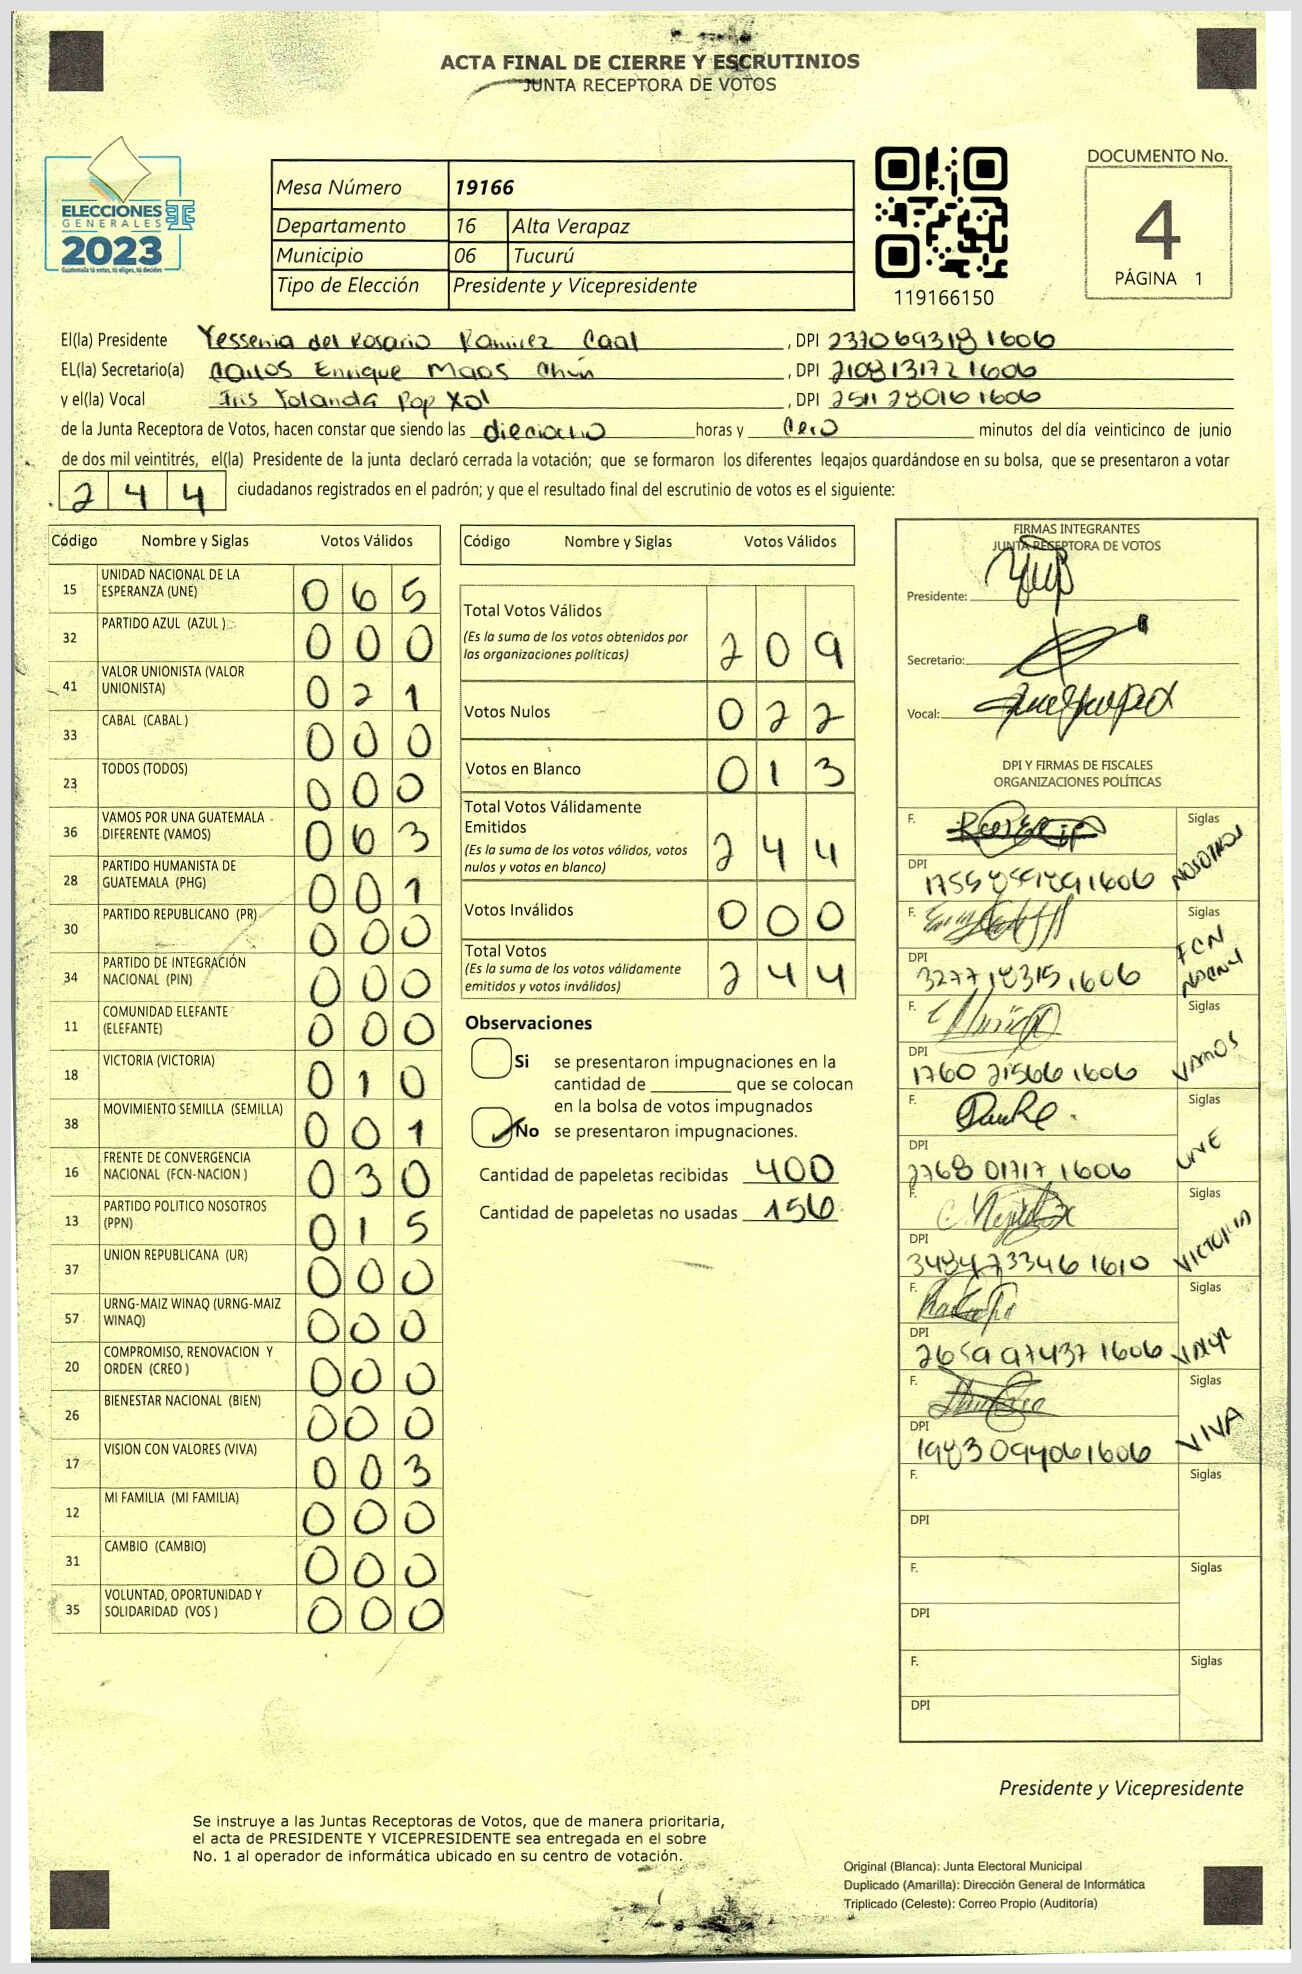 ACTA FINAL DE CIERRE Y ESCRUTINIOS
JUNTA RECEPTORA DE VOTOS
ELECCIONES
GENERALES
2023
Guatemala tú votas, tú eliges, tú decides
Mesa Número 19166
Departamento 16 Alta Verapaz
Municipio 06 Tucurú
Tipo de Elección Presidente y Vicepresidente
119166150
DOCUMENTO No.
4
PÁGINA 1
El(la) Presidente Yessenia del Rosario Ramirez Caal, DPI 2370693181606
EL(la) Secretario(a) Carlos Enrique Maas Chún, DPI 2108131721606
y el(la) Vocal Iris Yolanda Pop Xol, DPI 2511280161606
de la Junta Receptora de Votos, hacen constar que siendo las dieciocho horas y cero minutos del día veinticinco de junio
de dos mil veintitrés, el(la) Presidente de la junta declaró cerrada la votación; que se formaron los diferentes legajos guardándose en su bolsa, que se presentaron a votar
244 ciudadanos registrados en el padrón; y que el resultado final del escrutinio de votos es el siguiente:
Código Nombre y Siglas Votos Válidos
15 UNIDAD NACIONAL DE LA ESPERANZA (UNE) 065
32 PARTIDO AZUL (AZUL) 000
41 VALOR UNIONISTA (VALOR UNIONISTA) 021
33 CABAL (CABAL) 000
23 TODOS (TODOS) 000
36 VAMOS POR UNA GUATEMALA DIFERENTE (VAMOS) 063
28 PARTIDO HUMANISTA DE GUATEMALA (PHG) 001
30 PARTIDO REPUBLICANO (PR) 000
34 PARTIDO DE INTEGRACIÓN NACIONAL (PIN) 000
11 COMUNIDAD ELEFANTE (ELEFANTE) 000
18 VICTORIA (VICTORIA) 010
38 MOVIMIENTO SEMILLA (SEMILLA) 001
16 FRENTE DE CONVERGENCIA NACIONAL (FCN-NACION) 030
13 PARTIDO POLITICO NOSOTROS (PPN) 015
37 UNION REPUBLICANA (UR) 000
57 URNG-MAIZ WINAQ (URNG-MAIZ WINAQ) 000
20 COMPROMISO, RENOVACION Y ORDEN (CREO) 000
26 BIENESTAR NACIONAL (BIEN) 000
17 VISION CON VALORES (VIVA) 003
12 MI FAMILIA (MI FAMILIA) 000
31 CAMBIO (CAMBIO) 000
35 VOLUNTAD, OPORTUNIDAD Y SOLIDARIDAD (VOS) 000
Código Nombre y Siglas Votos Válidos
Total Votos Válidos 209
(Es la suma de los votos obtenidos por
las organizaciones políticas)
Votos Nulos 022
Votos en Blanco 013
Total Votos Válidamente
Emitidos 244
(Es la suma de los votos válidos, votos
nulos y votos en blanco)
Votos Inválidos 000
Total Votos 244
(Es la suma de los votos válidamente
emitidos y votos inválidos)
Observaciones
Si se presentaron impugnaciones en la
cantidad de ________ que se colocan
en la bolsa de votos impugnados
No se presentaron impugnaciones.
Cantidad de papeletas recibidas 400
Cantidad de papeletas no usadas 156
FIRMAS INTEGRANTES
JUNTA RECEPTORA DE VOTOS
Presidente:
Secretario:
Vocal:
DPI Y FIRMAS DE FISCALES
ORGANIZACIONES POLÍTICAS
F. Siglas NOSOTROS
DPI
F. Siglas FCN
DPI 3277183151606
F. Siglas VAMOS
DPI 1760215661606
F. Siglas UNE
DPI 2768017171606
F. Siglas VICTORIA
DPI 3484733461610
F. Siglas
DPI 2659974371606
F. Siglas VIVA
DPI 1983094061606
F. Siglas
DPI
F. Siglas
DPI
F. Siglas
DPI
Presidente y Vicepresidente
Se instruye a las Juntas Receptoras de Votos, que de manera prioritaria,
el acta de PRESIDENTE Y VICEPRESIDENTE sea entregada en el sobre
No. 1 al operador de informática ubicado en su centro de votación.
Original (Blanca): Junta Electoral Municipal
Duplicado (Amarilla): Dirección General de Informática
Triplicado (Celeste): Correo Propio (Auditoría)